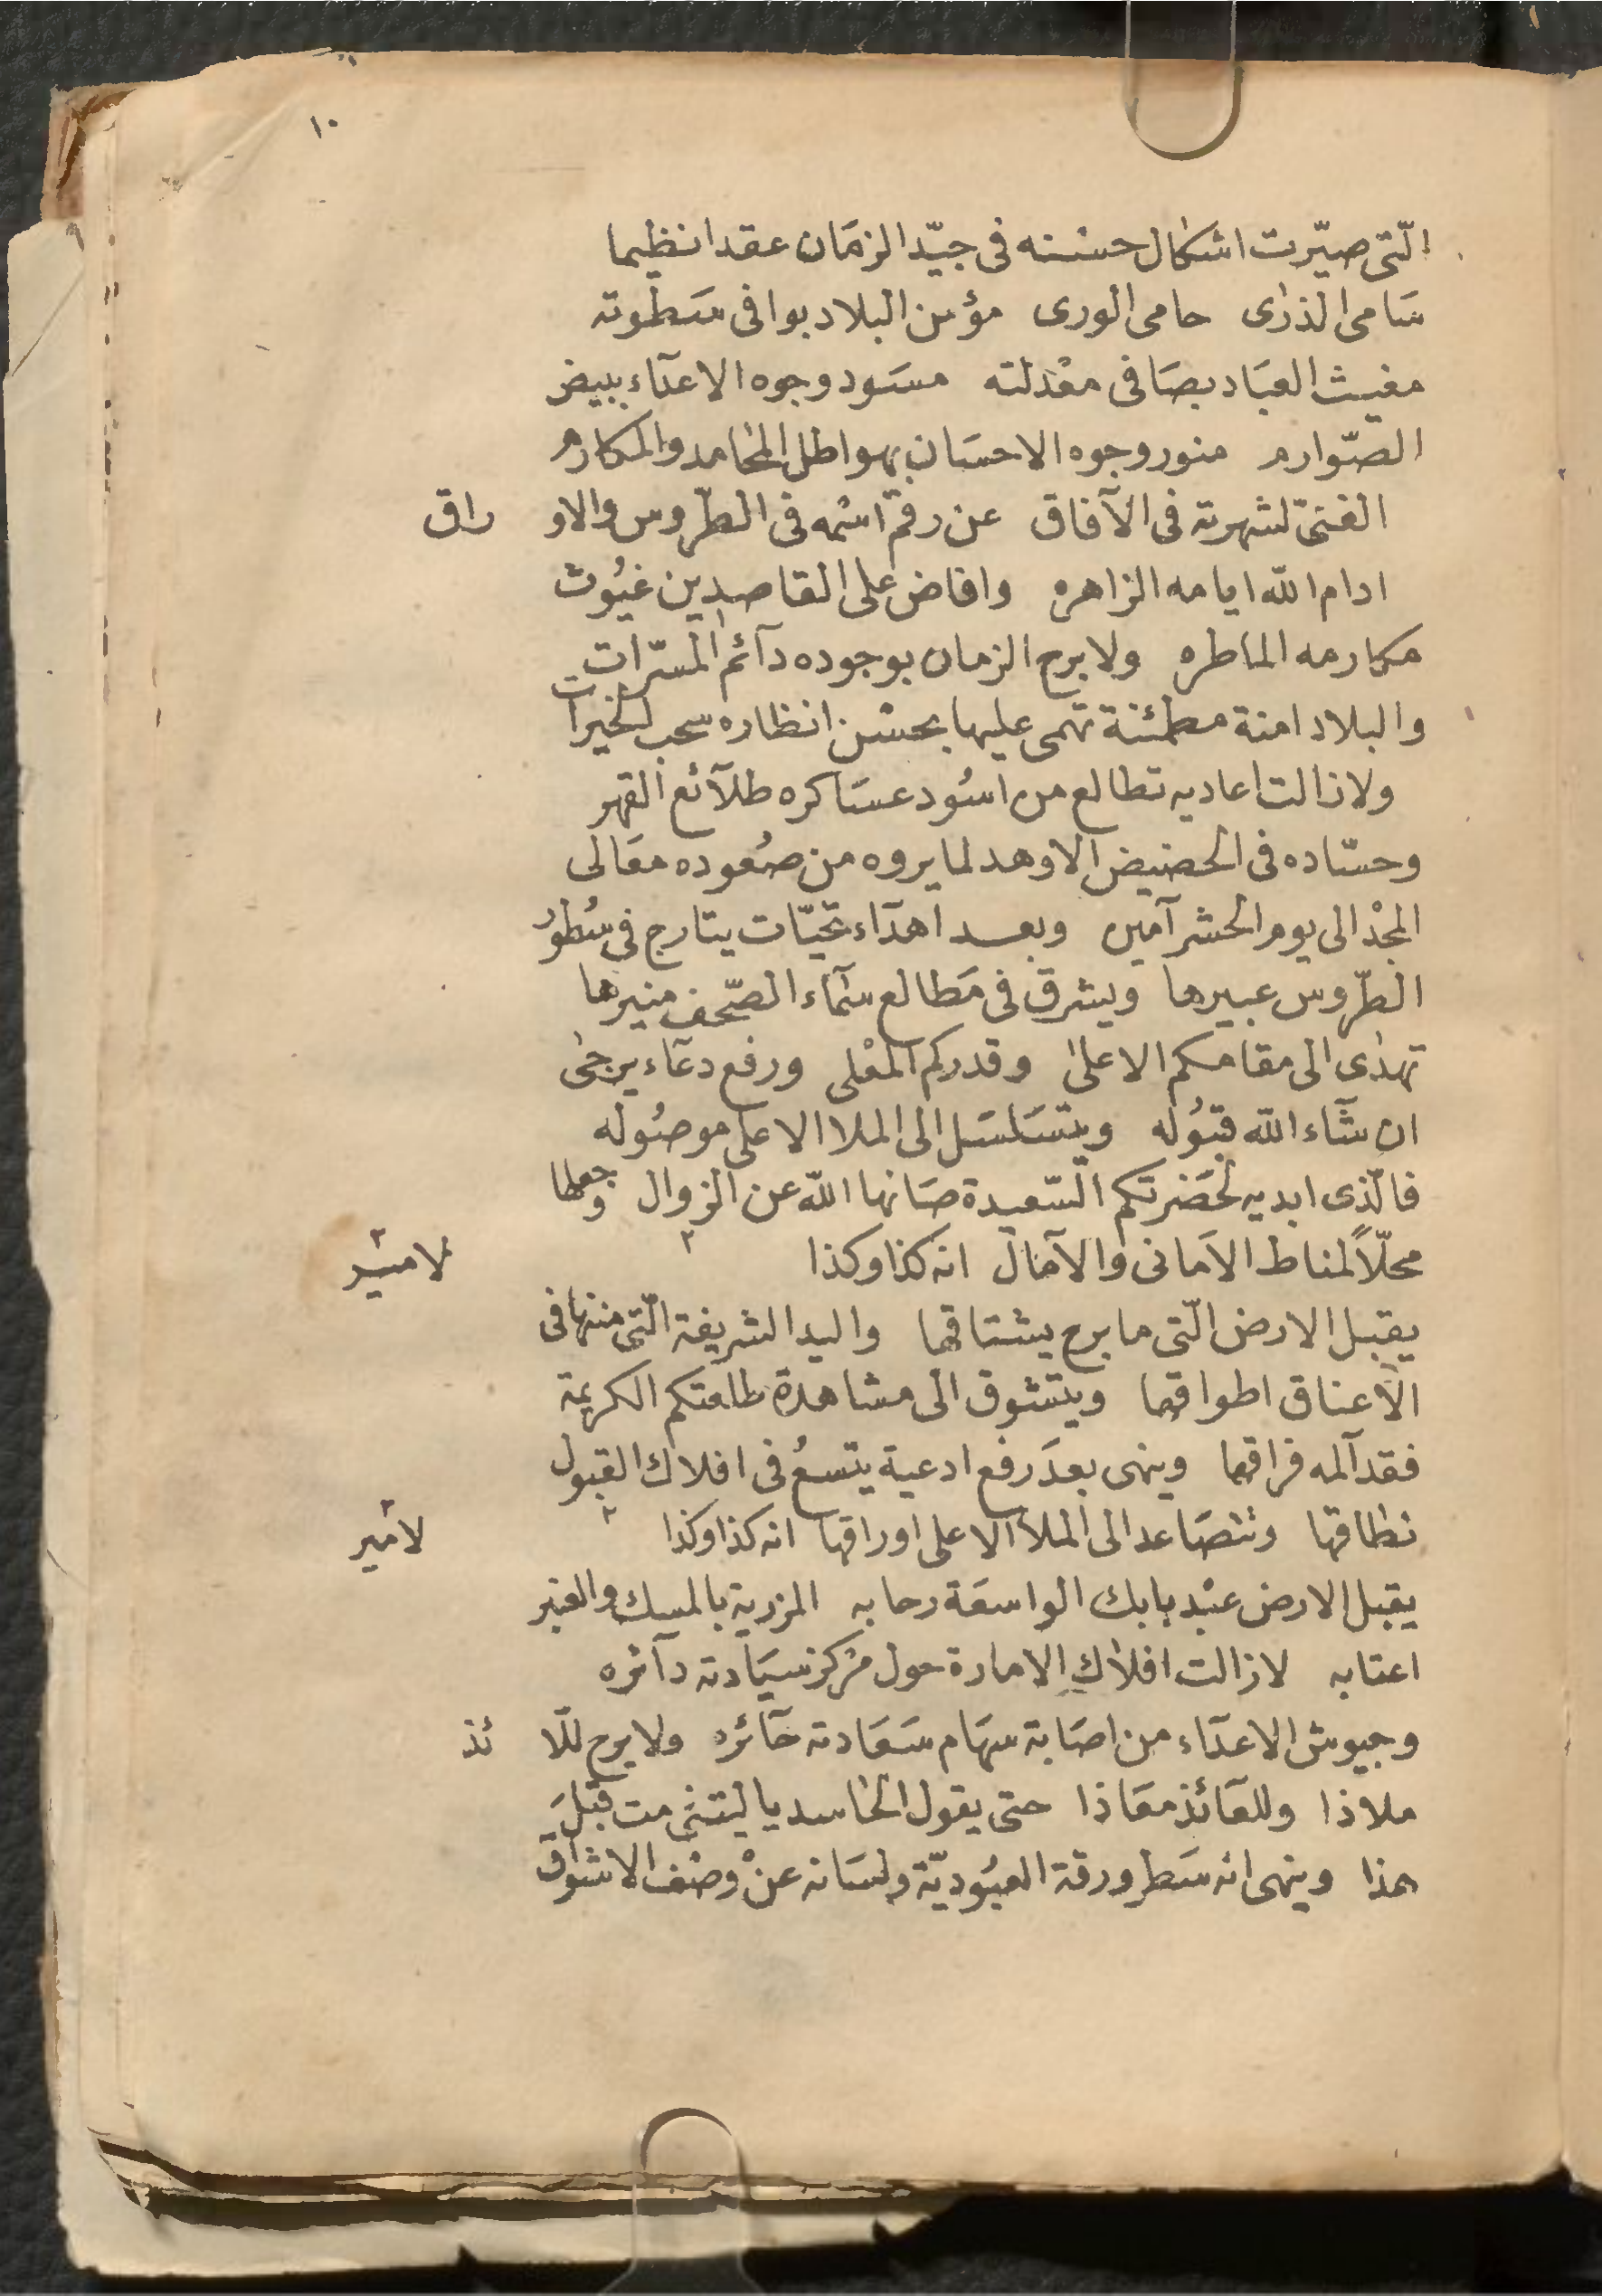 ١٠
الّتى صيّرت اشكال حسْنه فى جيّد الزمَان عقدا نظيما
سَامى الذرٰى حامى الورى مؤمن البلاد بوافى سَطْوته
مغيث العبَاد بصَافى معْدلته مسَود وجوه الاعدآء ببيض
الصّوارم منور وجوه الاحسَان بهواطل المحَامد والمكارم
الغنىّ لشهرته فى الآفاق عن رقم اسْمه فى الطّروس والاوراق
ادام الله ايامه الزاهره وافاض على القاصدين غيُوث
مكارمه الماطره ولا برح الزمان بوجوده دآئم المسّرات
والبلاد امنة مطمئنة تهمى عليها بحسْن انظاره سحب الخيرات
ولا زالت اعاديه تطالع من اسُود عسَاكره طلآئع القهر
وحسّاده فى الحضيض الاوهد لما يروه من صعُوده معَالى
المجْد الى يوم الحشر آمين وبعد اهدآء تحيّات يتارج فى سُطورْ
الطّروس عبيرها ويشرق فى مَطالع سمَآء الصّحف منيرها
تهدٰى الى مقامكم الاعلىٰ وقدركم المعْلى ورفع دعآء يرجٰى
ان شآء الله قبُوله ويتسَلسَل الى الملا الاعلى موصُوله
فالّذى ابديه لحَضرتكم السّعيدة صَانها الله عن الزوال وجعلها
محلّاً لمناط الاَمانى والآمَال انه كذا وكذا لامير
يقبل الارض الّتى ما برح يشتاقها واليد الشريفة الّتى مننها فى
الاَعناق اطواقها ويتشوق الى مشاهدة طلعتكم الكريمة
فقد آلمه فراقها وينهى بعدَ رفع ادعية يتسعُ فى افلاك القبول
نطاقها وتتصَاعد الى الملأ الاعلى اوراقها انه كذا وكذا لامير
يقبل الارض عبْد بابك الواسعَة رحابه المزرية بالمسك والعنبر
اعتابه لا زالت افلاك الامارة حول مْركز سيَادته دآئره
وجيوش الاعدَآء من اصَابة سهَام سَعَادته حَآئره ولا برح للّائذ
ملاذا وللعَآئذ معَاذا حتى يقول الحَاسد يا ليتنى مت قبْلَ
هذا وينهى انه سَطر ورقة العبُوديّة ولسَانه عنْ وصْف الاشواق